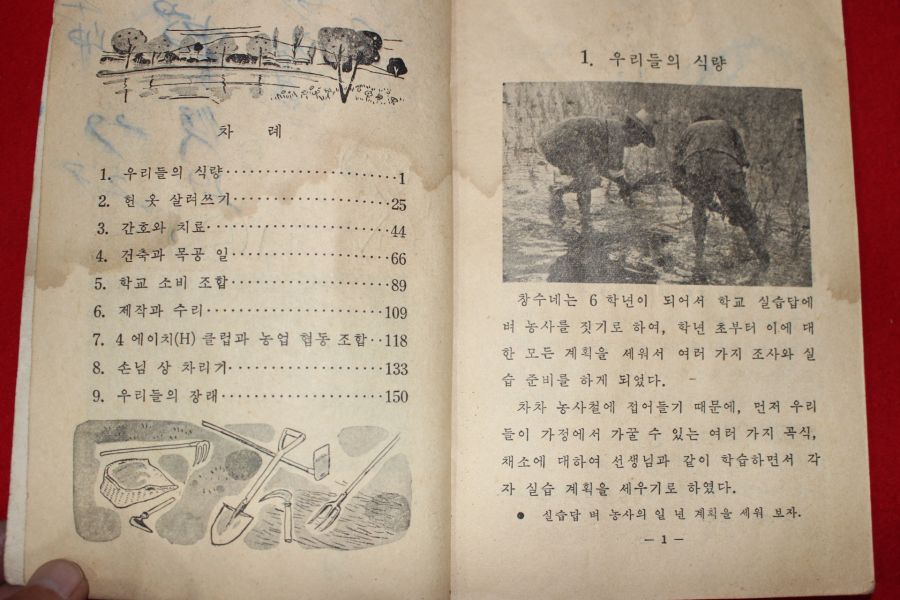 차 례
1. 우리들의 식량·····················1
2. 헌 옷 살려쓰기····················25
3. 간호와 치료·······················44
4. 건축과 목공 일····················66
5. 학교 소비 조합····················89
6. 제작과 수리·······················109
7. 4 에이치(H) 클럽과 농업 협동 조합··118
8. 손님 상 차리기····················133
9. 우리들의 장래·····················150
1. 우리들의 식량
창수네는 6 학년이 되어서 학교 실습답에
벼 농사를 짓기로 하여, 학년 초부터 이에 대
한 모든 계획을 세워서 여러 가지 조사와 실
습 준비를 하게 되었다.
차차 농사철에 접어들기 때문에, 먼저 우리
들이 가정에서 가꿀 수 있는 여러 가지 곡식,
채소에 대하여 선생님과 같이 학습하면서 각
자 실습 계획을 세우기로 하였다.
● 실습답 벼 농사의 일 년 계획을 세워 보자.
— 1 —